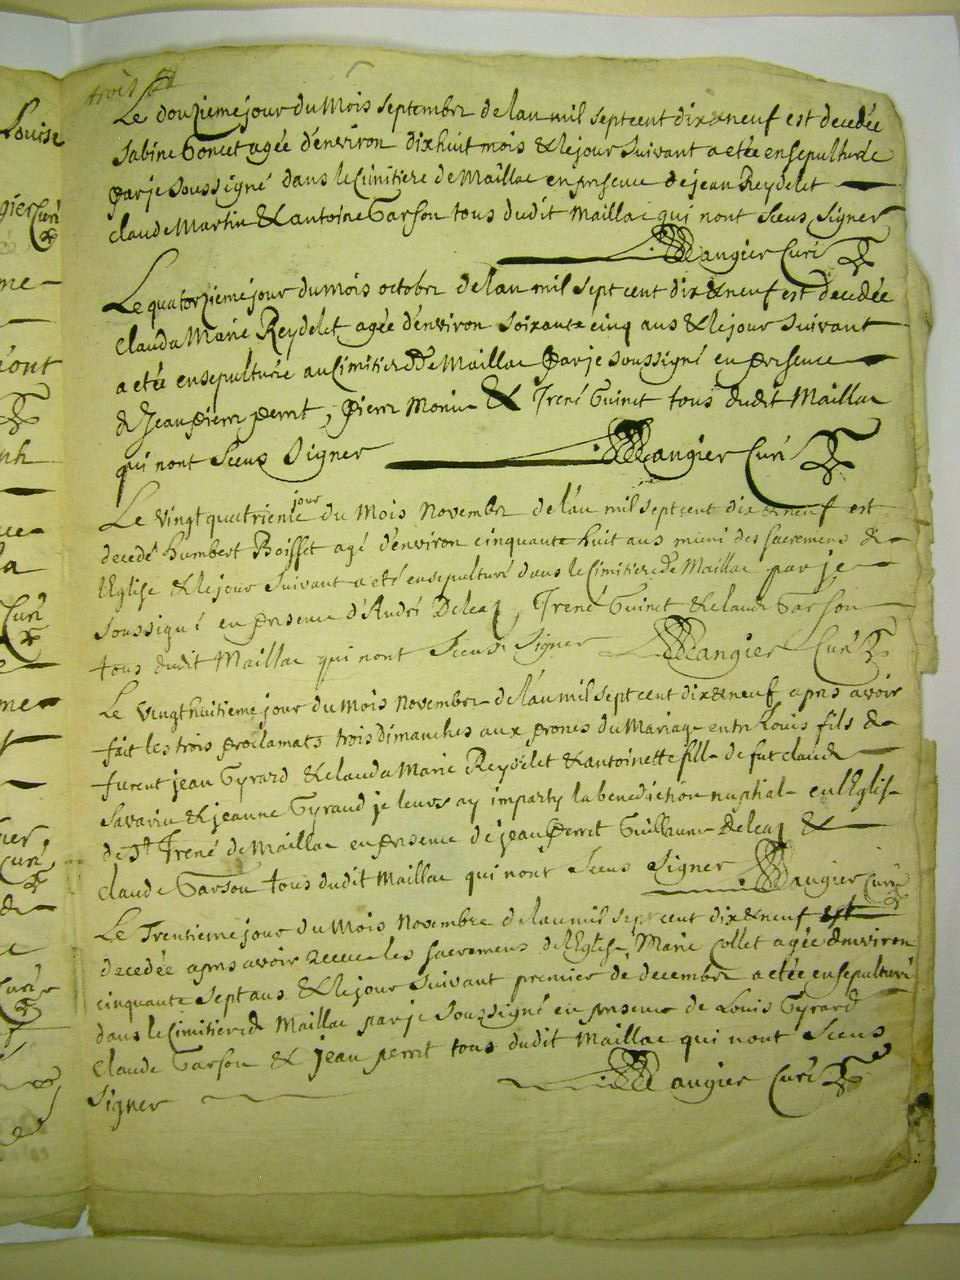 trois
Le douzieme jour du Mois septembre de lan mil sept cent dix & neuf est decedée
Sabine Goncet agée d'environ dixhuit mois & le jour suivant a etée ensepulturée
par je soussigné dans le Cimitiere de Maillac en presence de jean Reydelet
claude Martin & antoine Garson tous dudit Maillac qui nont Sceus Signer
Mangier Curé
Le quatorzieme jour du Mois octobre de lan mil sept cent dix & neuf est decedée
clauda Marie Reydelet agée d'environ soixante cinq ans & le jour suivant
a etée ensepulturée au Cimitiere de Maillac par je soussigné en presence
de Jean pierre perret, pierre Monin & Irené Guinet tous dudit Maillac
qui nont Sceus Signer Mangier Curé
Le vingt quatrieme jour du Mois Novembre de lan mil sept cent dix & neuf est
decedé humbert Boisset agé d'environ cinquante huit ans muni des sacremens de
l'Eglise & le jour suivant a eté ensepulturé dans le Cimitiere de Maillac par je
soussigné en presence d'André Deleaz, Irené Guinet & claude Garson
tous dudit Maillac qui nont Sceus Signer Mangier Curé
Le vingthuitieme jour du Mois Novembre de lan mil sept cent dix & neuf apres avoir
fait les trois proclamats trois dimanches aux prones du Mariage entre Louis fils de
furent jean Gyrard & clauda Marie Reydelet & antoinette fille de fut claude
Savarin & jeanne Gyraud je leurs ay imparty la benediction nuptiale en l'Eglise
de St Irené de Maillac en presence de jean perret Guillaume deleaz &
claude Garson tous dudit Maillac qui nont Sceus Signer Mangier Curé
Le Trentieme jour du Mois Novembre de lan mil sept cent dix & neuf est
decedée apres avoir receue les sacremens de l'Eglise Marie Collet agée denviron
cinquante sept ans & le jour suivant premier de decembre a etée ensepulturé
dans le Cimitiere de Maillac par je soussigné en presence de Louis Gyrard
claude Garson & jean perret tous dudit Maillac qui nont Sceus
Signer Mangier Curé